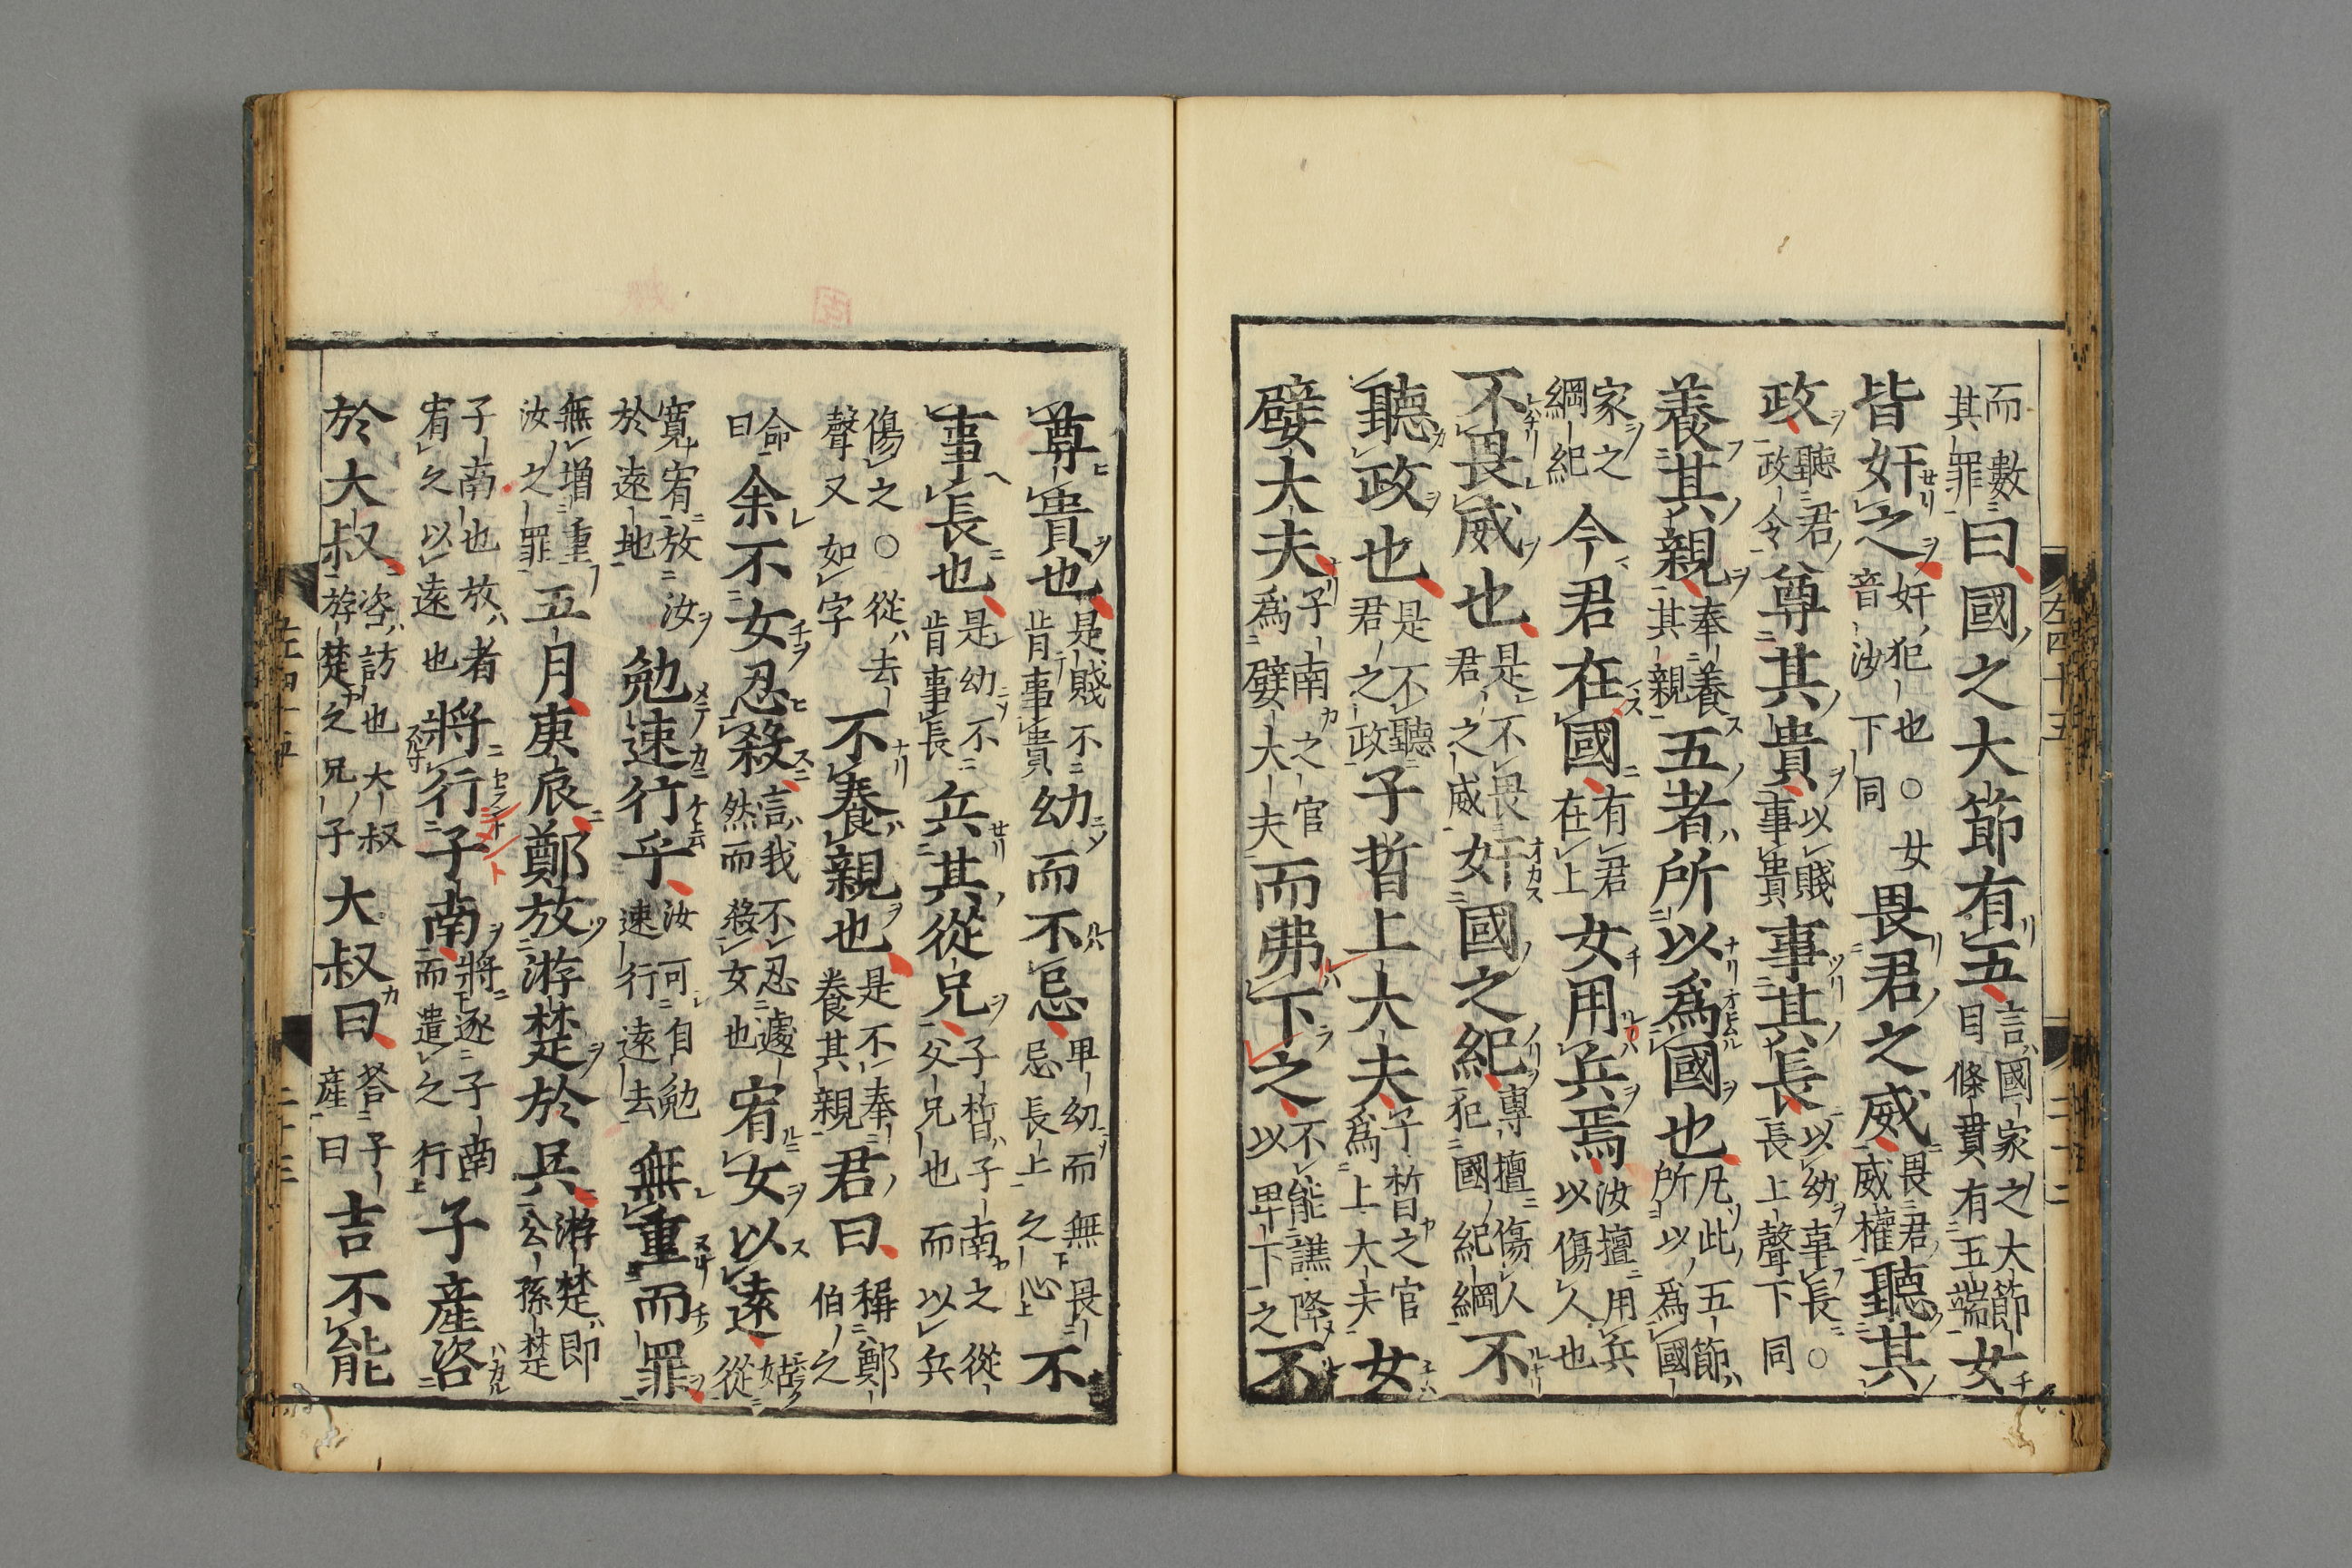 而數其罪曰國之大節有五言國家之大節目條貫有五端女
皆奸之奸犯也○女音汝下同畏君之威畏君威權聽其
政聽君政令尊其貴以賤事貴事其長以幼事長○長上聲下同
養其親奉養其親五者所以爲國也凡此五節所以爲國
家之綱紀今君在國有君在上女用兵焉汝擅用兵以傷人也
不畏威也是不畏君之威奸國之紀專擅傷人犯國紀綱不
聽政也是不聽君之政子晳上大夫子晳之官爲上大夫女
嬖大夫子南之官爲嬖大夫而弗下之不能謙降以卑下之不
尊貴也是賤不肯事貴幼而不忌卑幼而無畏忌長上之心不
事長也是幼不肯事長兵其從兄子晳子南之從父兄也而以兵
傷之○從去聲又如字不養親也是不奉養其親君曰稱鄭伯之
命曰余不女忍殺言我不忍遽然而殺女也宥女以遠姑從
寬宥放汝於遠地勉速行乎汝可自勉速行遠去無重而罪
無增重汝之罪五月庚辰鄭放游楚於呉游楚即公孫楚
子南也放者宥之以遠也將行子南將逐子南而遣之行子產咨
於大叔咨訪也大叔游楚之兄子大叔曰荅子產曰吉不能
左四十五
二十二
左四十五
二十三